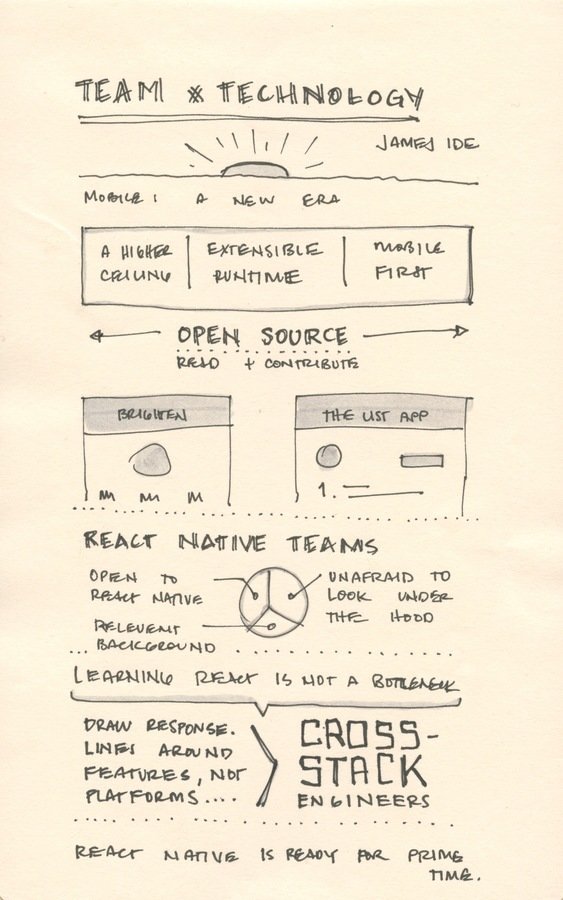 TEAM × TECHNOLOGY
JAMES IDE
MOBILE: A NEW ERA
A HIGHER CEILING
EXTENSIBLE RUNTIME
MOBILE FIRST
OPEN SOURCE
READ + CONTRIBUTE
BRIGHTEN
THE LIST APP
1.
REACT NATIVE TEAMS
OPEN TO
REACT NATIVE
UNAFRAID TO
LOOK UNDER
THE HOOD
RELEVENT
BACKGROUND
LEARNING REACT IS NOT A BOTTLENECK
DRAW RESPONSE.
LINES AROUND
FEATURES, NOT
PLATFORMS....
CROSS-
STACK
ENGINEERS
REACT NATIVE IS READY FOR PRIME
TIME.